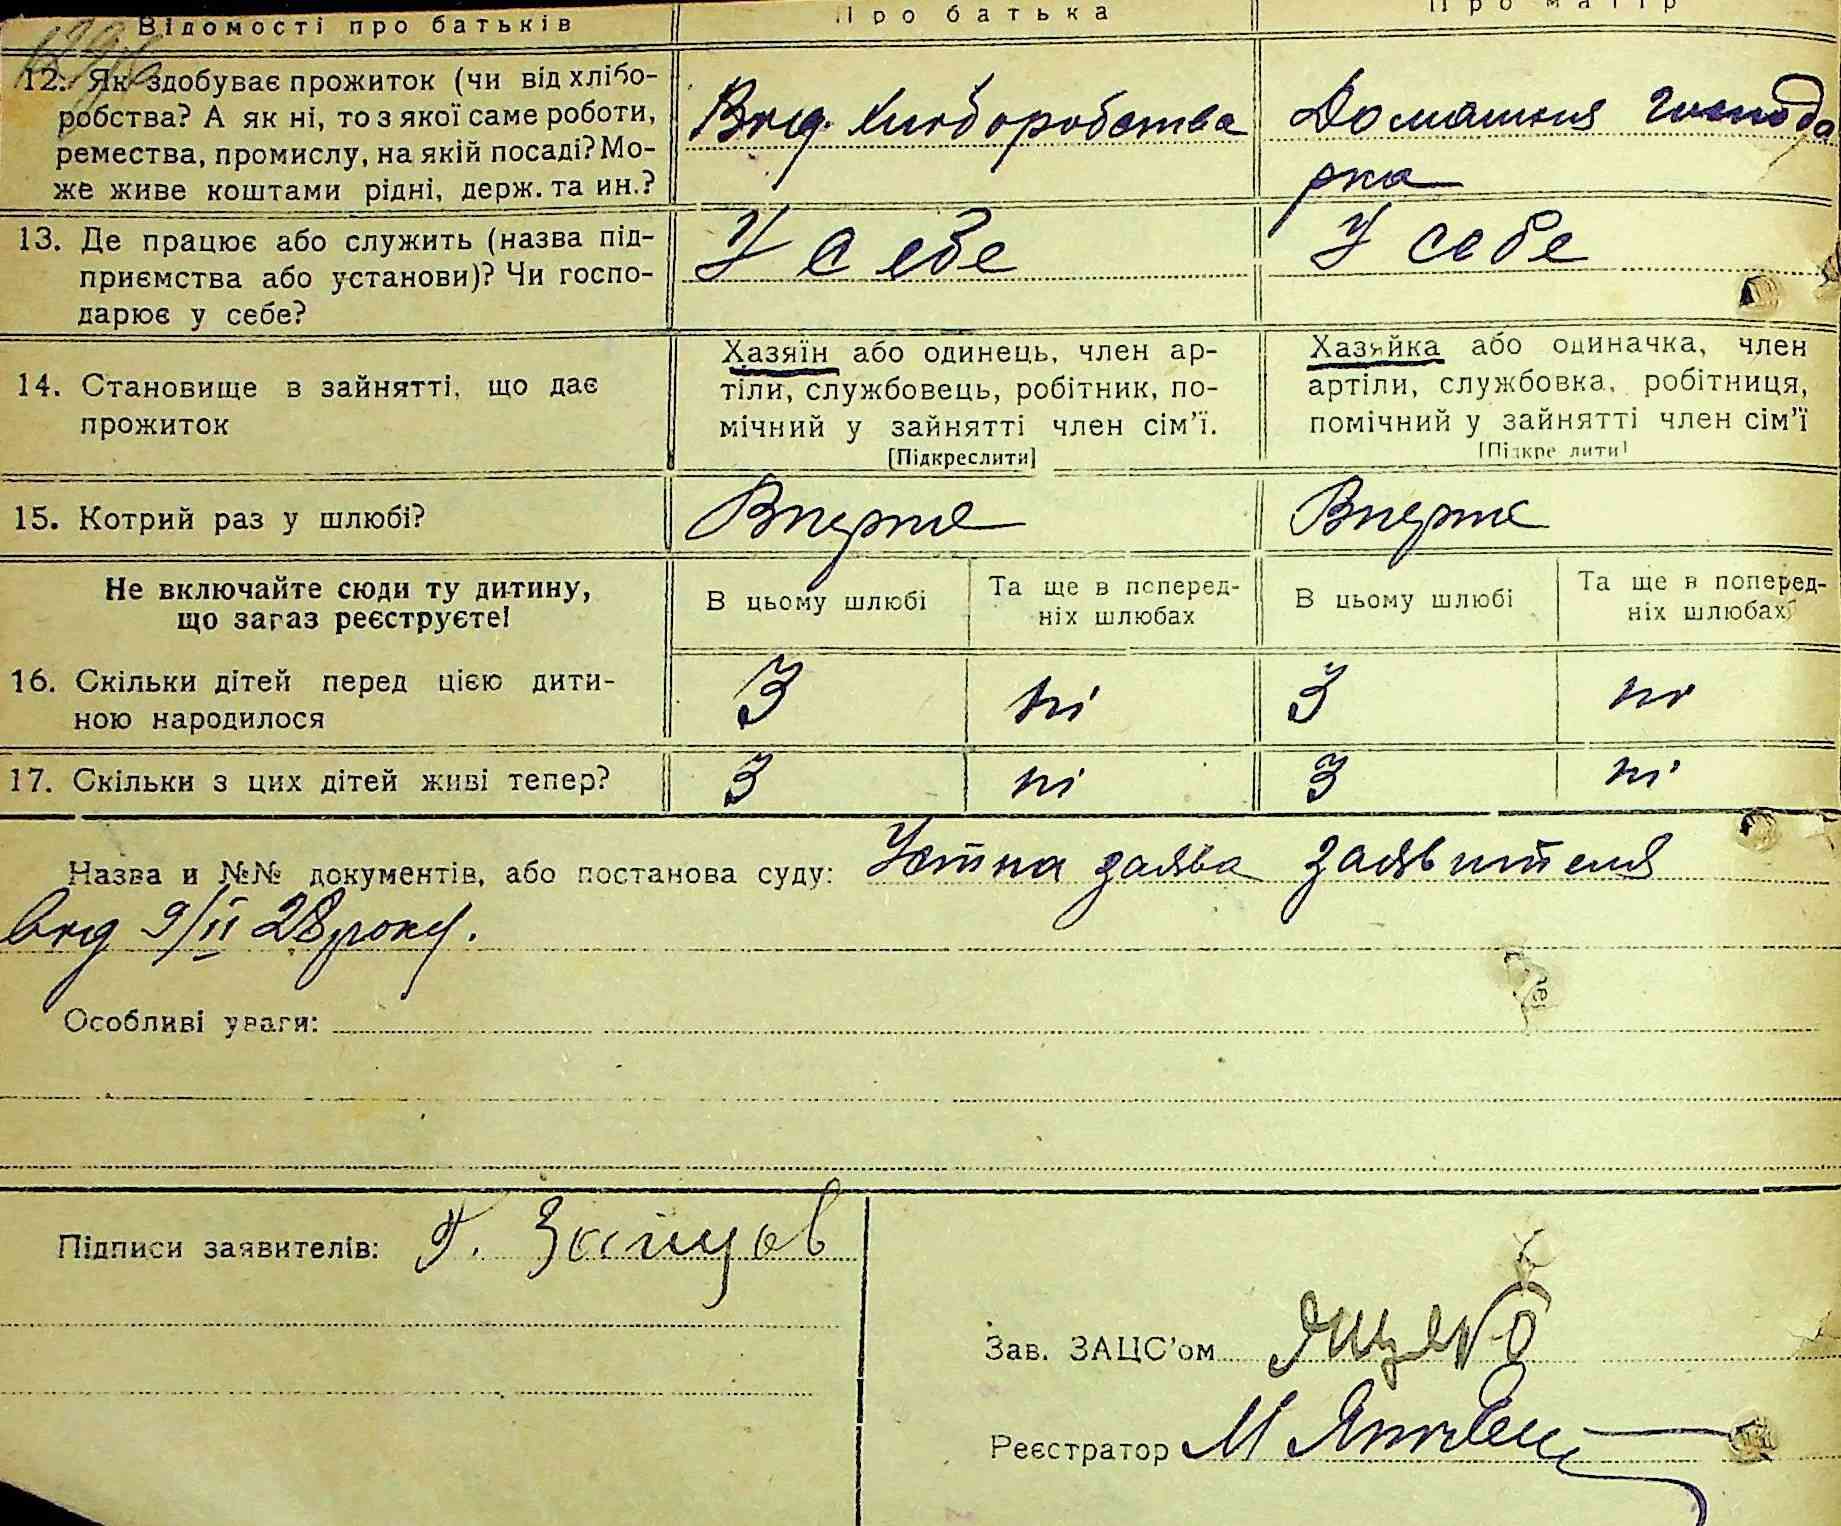 Відомості про батьків
Про батька
Про матір
12. Як здобуває прожиток (чи від хлібо-
робства? А як ні, то з якої саме роботи,
ремества, промислу, на якій посаді? Мо-
же живе коштами рідні, держ. та ин.?
Вид. хлиборобства
Домашня господа
рка
13. Де працює або служить (назва під-
приємства або установи)? Чи госпо-
дарює у себе?
У себе
У себе
14. Становище в зайнятті, що дає
прожиток
Хазяїн або одинець, член ар-
тіли, службовець, робітник, по-
мічний у зайнятті член сім'ї.
[Підкреслити]
Хазяйка або одиначка, член
артіли, службовка, робітниця,
помічний у зайнятті член сім'ї
[Підкре лити]
15. Котрий раз у шлюбі?
Вперше
Вперше
Не включайте сюди ту дитину,
що зараз реєструєте!
В цьому шлюбі
Та ще в поперед-
ніх шлюбах
В цьому шлюбі
Та ще в поперед-
ніх шлюбах
16. Скільки дітей перед цією дити-
ною народилося
3 ні 3 ні
17. Скільки з цих дітей живі тепер?
3 ні 3 ні
Назва и №№ документів, або постанова суду: Устна заява заявителя
вид 9/II 28 року.
Особливі уваги:
Підписи заявителів: Зайцов
Зав. ЗАЦС'ом
Реєстратор М